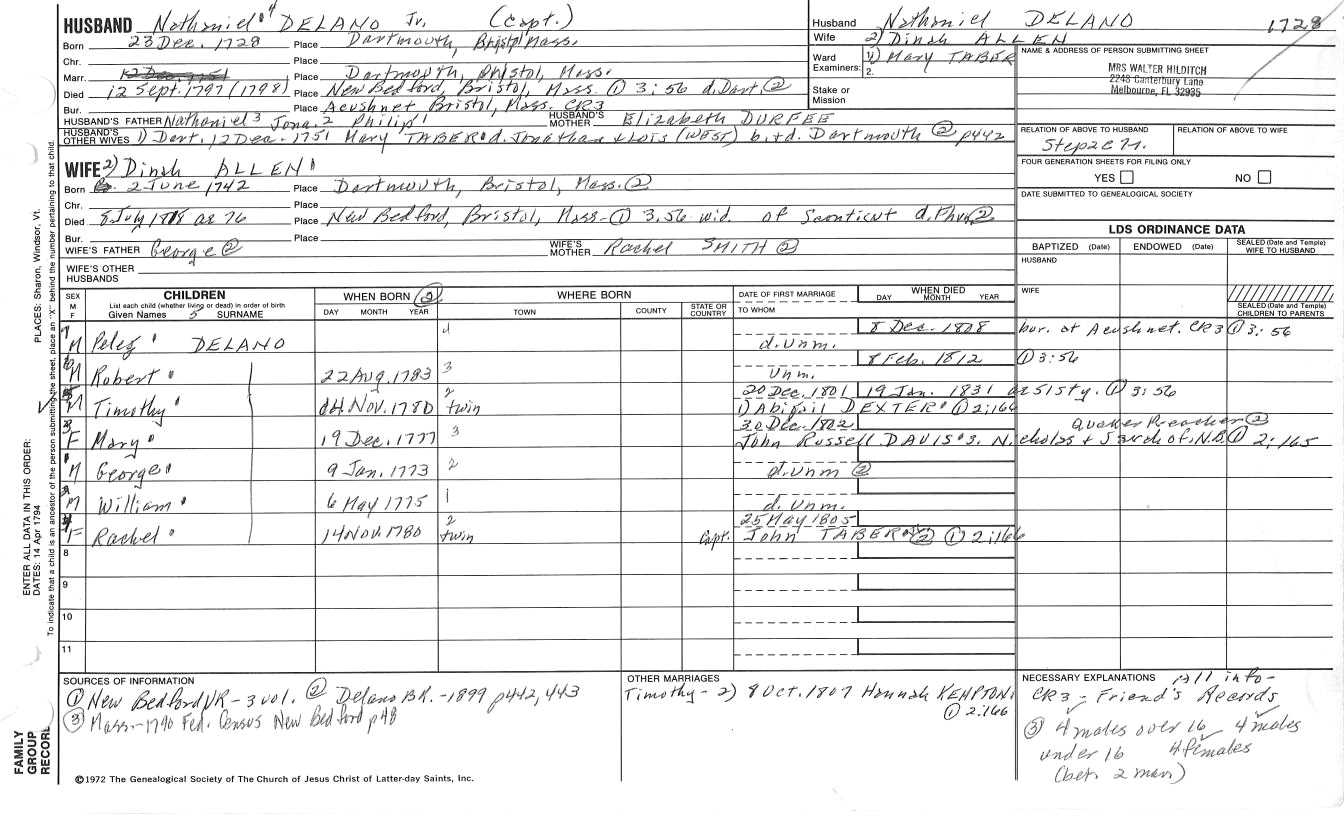 HUSBAND Nathaniel 4 DELANO Jr. (Capt.)
Born 23 Dec. 1728 Place Dartmouth, Bristol, Mass.
Chr. Place
Marr. 12 Dec. 1751 Place Dartmouth, Bristol, Mass.
Died 12 Sept. 1797 (1798) Place New Bedford, Bristol, Mass. ① 3:56 d. Dart. ②
Bur. Place Acushnet Bristol, Mass. CR3
HUSBAND'S FATHER Nathaniel 3 Jona. 2 Philip 1 HUSBAND'S MOTHER Elizabeth DURFEE
HUSBAND'S OTHER WIVES 1) Dart. 12 Dec. 1751 Mary TABER d. Jonathan & Lois (WEST) b.+d. Dartmouth ② p442
WIFE 2) Dinah ALLEN
Born 2 June 1742 Place Dartmouth, Bristol, Mass. ②
Chr. Place
Died 8 July 1818 ae 76 Place New Bedford, Bristol, Mass - ① 3.56 wid. of Sconticut d. Fhvn ②
Bur. Place
WIFE'S FATHER George ② WIFE'S MOTHER Rachel SMITH ②
WIFE'S OTHER HUSBANDS
Husband Nathaniel DELANO 1728
Wife 2) Dinah ALLEN
Ward Examiners: 1. 1) Mary TABER
2.
Stake or Mission
NAME & ADDRESS OF PERSON SUBMITTING SHEET
MRS WALTER HILDITCH
2248 Canterbury Lane
Melbourne, FL 32935
RELATION OF ABOVE TO HUSBAND RELATION OF ABOVE TO WIFE
FOUR GENERATION SHEETS FOR FILING ONLY
YES NO
DATE SUBMITTED TO GENEALOGICAL SOCIETY
LDS ORDINANCE DATA
BAPTIZED (Date) ENDOWED (Date) SEALED (Date and Temple) WIFE TO HUSBAND
HUSBAND
WIFE
SEALED (Date and Temple) CHILDREN TO PARENTS
SEX M F CHILDREN List each child (whether living or dead) in order of birth Given Names 5 SURNAME
WHEN BORN ② DAY MONTH YEAR
WHERE BORN TOWN COUNTY STATE OR COUNTRY
DATE OF FIRST MARRIAGE TO WHOM
WHEN DIED DAY MONTH YEAR
7 M Peleg DELANO 4 d. Unm. 8 Dec. 1808 bur. at Acushnet. CR3 ① 3:56
6 M Robert 22 Aug. 1783 3 Unm. 8 Feb. 1812 ① 3:56
M Timothy 14 Nov. 1780 2 twin 20 Dec. 1801 1) Abigail DEXTER ① 2:166 19 Jan. 1831 ae 51 5ty. ① 3:56
3 F Mary 19 Dec. 1777 3 30 Dec. 1802 John Russell DAVIS s. Nicholas + Sarah of N.B. ① 2:165 Quaker Preacher ②
1 M George 9 Jan. 1773 2 d. Unm ②
2 M William 6 May 1775 1 d. Unm.
4 F Rachel 14 Nov. 1780 2 twin 25 May 1805 Capt. John TABER ② ① 2:166
8
9
10
11
SOURCES OF INFORMATION
① New Bedford VR - 3 vol. ② Delano BK. - 1899 p442, 443
③ Mass. - 1790 Fed. Census New Bedford p48
OTHER MARRIAGES
Timothy - 2) 8 Oct. 1807 Hannah KEMPTON
① 2:166
NECESSARY EXPLANATIONS All info-
CR3 - Friend's Records
③ 4 males over 16 4 males
under 16 4 females
(bet. 2 man)
©1972 The Genealogical Society of The Church of Jesus Christ of Latter-day Saints, Inc.
FAMILY GROUP RECORD
ENTER ALL DATA IN THIS ORDER:
DATES: 14 Apr 1794
PLACES: Sharon, Windsor, Vt.
To indicate that a child is an ancestor of the person submitting the sheet, place an "X" behind the number pertaining to that child.